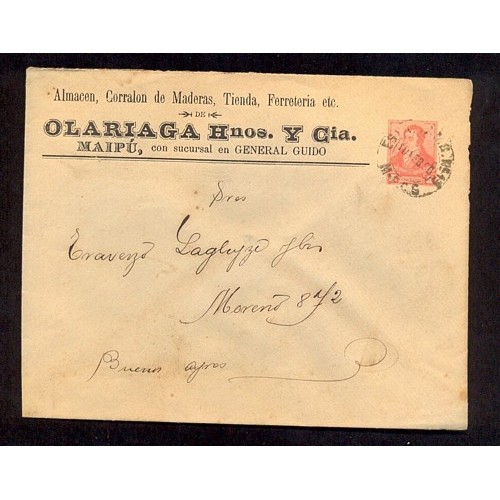 Almacen, Corralon de Maderas, Tienda, Ferreteria etc.
DE
OLARIAGA Hnos. Y Cia.
MAIPÚ, con sucursal en GENERAL GUIDO
Sres
Traverzo Laglyze Hos
Moreno 812
Buenos ayres